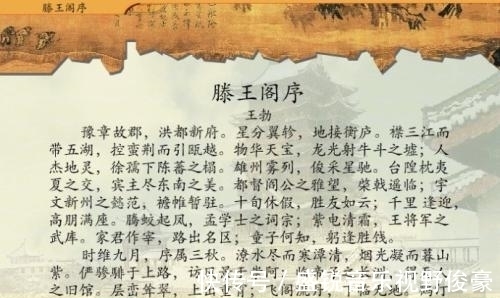 滕王阁序
滕王阁序
王勃
豫章故郡，洪都新府。星分翼轸，地接衡庐。襟三江而
带五湖，控蛮荆而引瓯越。物华天宝，龙光射牛斗之墟；人
杰地灵，徐孺下陈蕃之榻。雄州雾列，俊采星驰。台隍枕夷
夏之交，宾主尽东南之美。都督阎公之雅望，棨戟遥临；宇
文新州之懿范，襜帷暂驻。十旬休假，胜友如云；千里逢迎，
高朋满座。腾蛟起凤，孟学士之词宗；紫电清霜，王将军之
武库。家君作宰，路出名区；童子何知，躬逢胜饯。
时维九月，序属三秋。潦水尽而寒潭清，烟光凝而暮山
紫。俨骖騑于上路，访
之旧馆。层峦耸翠，上
快传号 / 音乐视野俊豪